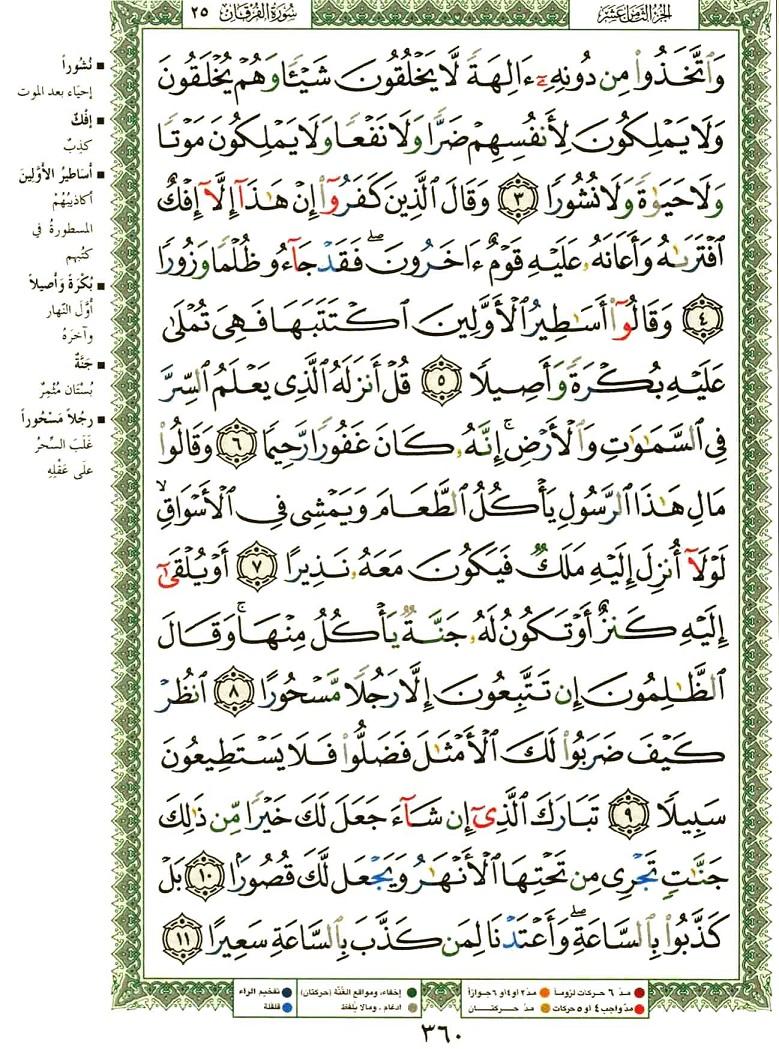 الجزء الثامن عشر
سورة الفرقان ٢٥
وَٱتَّخَذُوا۟ مِن دُونِهِۦٓ ءَالِهَةً لَّا يَخْلُقُونَ شَيْـًٔا وَهُمْ يُخْلَقُونَ
وَلَا يَمْلِكُونَ لِأَنفُسِهِمْ ضَرًّا وَلَا نَفْعًا وَلَا يَمْلِكُونَ مَوْتًا
وَلَا حَيَوٰةً وَلَا نُشُورًا ٣ وَقَالَ ٱلَّذِينَ كَفَرُوٓا۟ إِنْ هَـٰذَآ إِلَّآ إِفْكٌ
ٱفْتَرَىٰهُ وَأَعَانَهُۥ عَلَيْهِ قَوْمٌ ءَاخَرُونَ ۖ فَقَدْ جَآءُو ظُلْمًا وَزُورًا
٤ وَقَالُوٓا۟ أَسَـٰطِيرُ ٱلْأَوَّلِينَ ٱكْتَتَبَهَا فَهِىَ تُمْلَىٰ
عَلَيْهِ بُكْرَةً وَأَصِيلًا ٥ قُلْ أَنزَلَهُ ٱلَّذِى يَعْلَمُ ٱلسِّرَّ
فِى ٱلسَّمَـٰوَٰتِ وَٱلْأَرْضِ ۚ إِنَّهُۥ كَانَ غَفُورًا رَّحِيمًا ٦ وَقَالُوا۟
مَالِ هَـٰذَا ٱلرَّسُولِ يَأْكُلُ ٱلطَّعَامَ وَيَمْشِى فِى ٱلْأَسْوَاقِ ۙ
لَوْلَآ أُنزِلَ إِلَيْهِ مَلَكٌ فَيَكُونَ مَعَهُۥ نَذِيرًا ٧ أَوْ يُلْقَىٰٓ
إِلَيْهِ كَنزٌ أَوْ تَكُونُ لَهُۥ جَنَّةٌ يَأْكُلُ مِنْهَا ۚ وَقَالَ
ٱلظَّـٰلِمُونَ إِن تَتَّبِعُونَ إِلَّا رَجُلًا مَّسْحُورًا ٨ ٱنظُرْ
كَيْفَ ضَرَبُوا۟ لَكَ ٱلْأَمْثَـٰلَ فَضَلُّوا۟ فَلَا يَسْتَطِيعُونَ
سَبِيلًا ٩ تَبَارَكَ ٱلَّذِىٓ إِن شَآءَ جَعَلَ لَكَ خَيْرًا مِّن ذَٰلِكَ
جَنَّـٰتٍ تَجْرِى مِن تَحْتِهَا ٱلْأَنْهَـٰرُ وَيَجْعَل لَّكَ قُصُورًۢا ١٠ بَلْ
كَذَّبُوا۟ بِٱلسَّاعَةِ ۖ وَأَعْتَدْنَا لِمَن كَذَّبَ بِٱلسَّاعَةِ سَعِيرًا ١١
■ نُشُوراً
إحيَاء بعد الموت
■ إفْكٌ
كذِبٌ
■ أسَاطيرُ الأوَّلينَ
أكاذيبُهُمْ
المسطورةُ في
كتُبهم
■ بُكْرَةً وَأصيلاً
أوَّلَ النّهار
وآخرَهُ
■ جَنَّةٌ
بُستَان مُثمِرٌ
■ رجُلاً مَسْحُوراً
غَلَبَ السِّحْرُ
علَى عَقْلِهِ
● مدّ ٦ حركات لزوماً ● مدّ ٢ أو ٤ أو ٦ جوازاً ● إخفاء، ومواقع الغُنَّة (حركتان) ● تفخيم الراء
● مدّ واجب ٤ أو ٥ حركات ● مدّ حركتان ● ادغام، ومالا يُلفظ ● قلقلة
٣٦٠